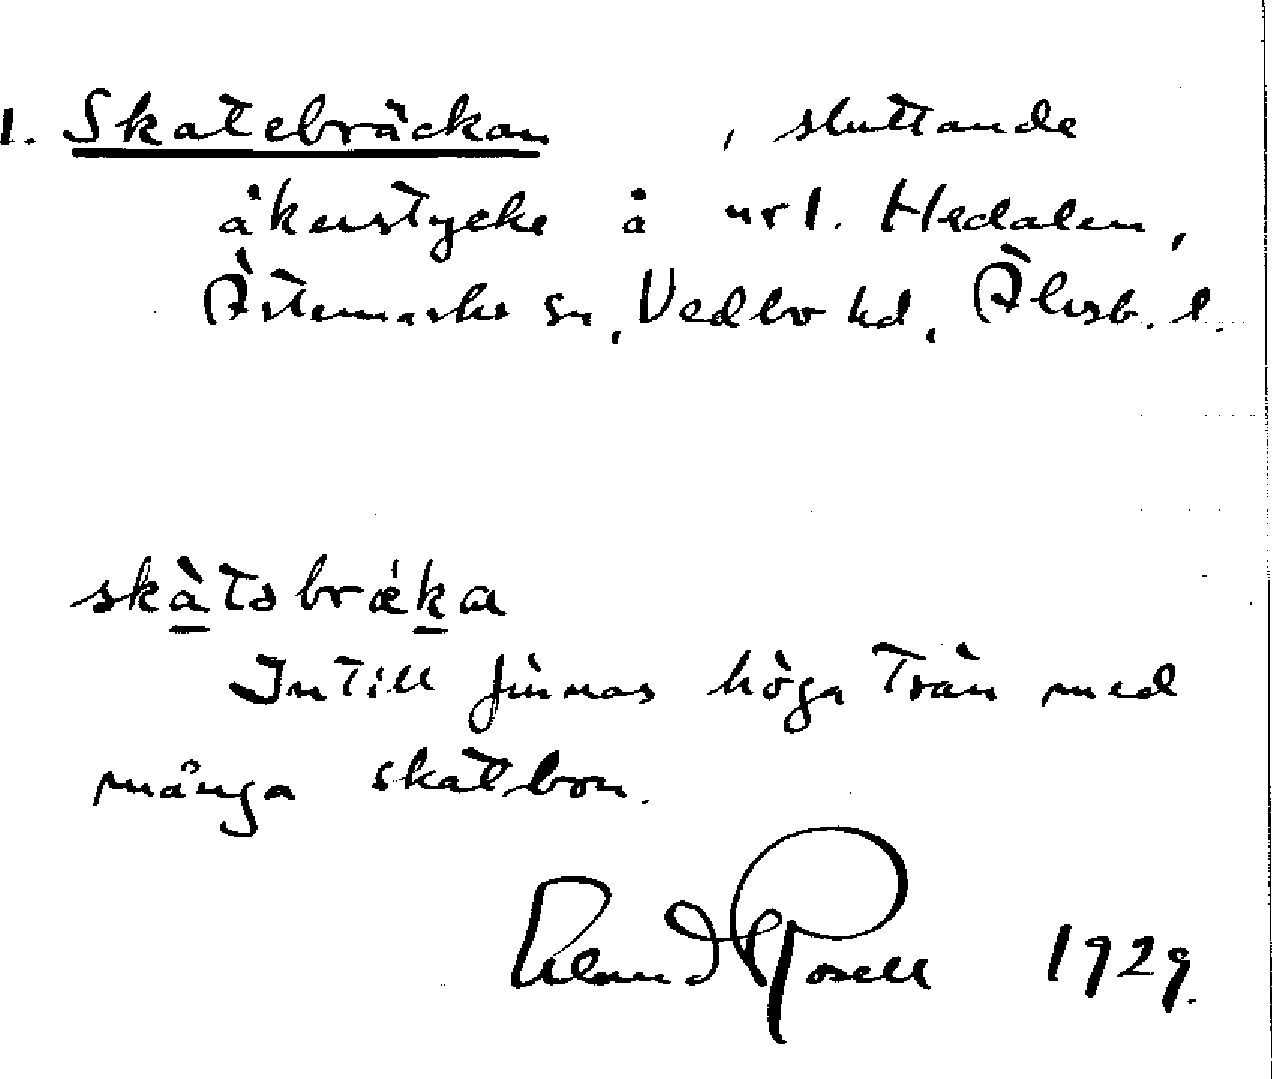 1. Skatebräckan , sluttande
åkerstycke å nr 1. Hedalen,
Ärtemarks sn, Vedbo hd, Älvsb. l.
skàtsbrǽka
Intill finnas höga trän med
många skatbon.
Rosell 1929.